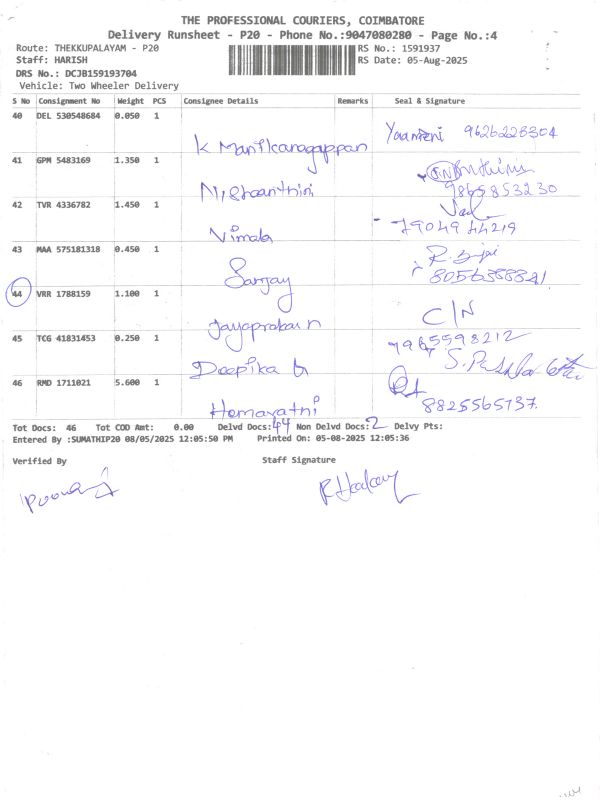 THE PROFESSIONAL COURIERS, COIMBATORE
Delivery Runsheet - P20 - Phone No.:9047080280 - Page No.:4
Route: THEKKUPALAYAM - P20 RS No.: 1591937
Staff: HARISH RS Date: 05-Aug-2025
DRS No.: DCJB159193704
Vehicle: Two Wheeler Delivery
S No Consignment No Weight PCS Consignee Details Remarks Seal & Signature
40 DEL 530548684 0.050 1
K Manikanagappan 9626228304
41 GPM 5483169 1.350 1
Nishaanthini 9865853230
42 TVR 4336782 1.450 1
Vimala 79049 44219
43 MAA 575181318 0.450 1
Sanjay
44 VRR 1788159 1.100 1
Jayaprakash C/N
45 TCG 41831453 0.250 1
Deepika 7965598212
46 RMD 1711021 5.600 1
Hemavathi 8825565737
Tot Docs: 46 Tot COD Amt: 0.00 Delvd Docs: 44 Non Delvd Docs: 2 Delvy Pts:
Entered By :SUMATHIP20 08/05/2025 12:05:50 PM Printed On: 05-08-2025 12:05:36
Verified By Staff Signature